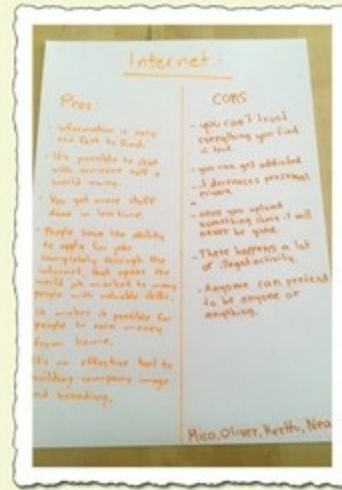 Internet:
Pros:
- Information is easy
and fast to find.
- It's possible to chat
with someone half a
world away.
- You get more stuff
done in less time.
- People have the ability
to apply for jobs
completely through the
internet, that opens the
world job market to many
people with valuable skills.
It makes it possible for
people to earn money
from home.
It's an effective tool to
building company image
and branding.
CONS:
- you can't trust
everything you find
is true.
- you can get addicted
- It decreases personal
privacy
- once you upload
something there it will
never be gone.
- There happens a lot
of illegal activity.
- Anyone can pretend
to be anyone or
anything.
Mico, Oliver, Kerttu, Nea